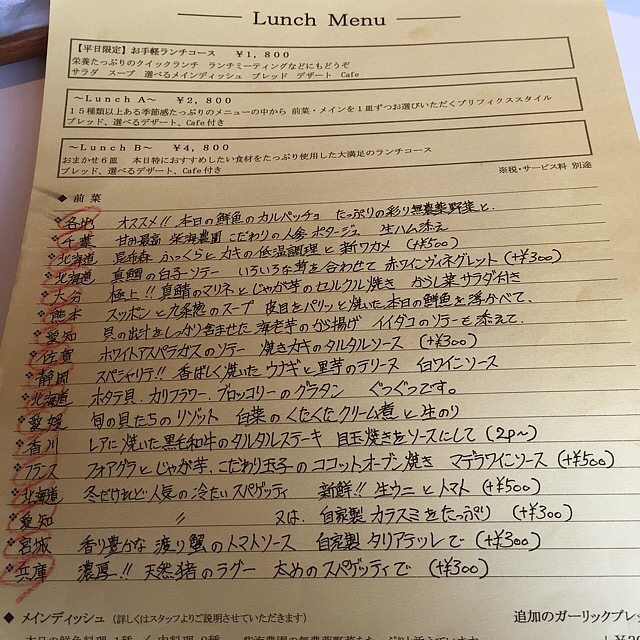 Lunch Menu
【平日限定】お手軽ランチコース ￥1，800
栄養たっぷりのクイックランチ ランチミーティングなどにもどうぞ
サラダ スープ 選べるメインディッシュ ブレッド デザート Cafe
～Lunch A～ ￥2，800
15種類以上ある季節感たっぷりのメニューの中から 前菜・メインを1皿ずつお選びいただくプリフィクススタイル
ブレッド、選べるデザート、Cafe付き
～Lunch B～ ￥4，800
おまかせ6皿 本日特におすすめしたい食材をたっぷり使用した大満足のランチコース
ブレッド、選べるデザート、Cafe付き
※税・サービス料 別途
◆ 前菜
各地 オススメ!! 本日の鮮魚のカルパッチョ たっぷりの彩り無農薬野菜と.
千葉 甘み最高 柴海農園 こだわりの人参 ポタージュ 生ハム添え
北海道 昆布森 ふっくらとカキの低温調理と新ワカメ (+¥500)
北海道 真鱈の白子ソテー いろいろな茸を合わせて 赤ワインヴィネグレット (+¥300)
大分 極上!! 真鯖のマリネとじゃが芋のセルクル焼き からし菜サラダ付き
熊本 スッポンと九条葱のスープ 皮目をパリッと焼いた本日の鮮魚を浮かべて.
愛知 貝の出汁をしっかり含ませた 海老芋のから揚げ イイダコのソテーを添えて.
佐賀 ホワイトアスパラガスのソテー 焼きカキのタルタルソース (+¥300)
静岡 スペシャリテ!! 香ばしく焼いた ウナギと里芋のテリーヌ 白ワインソース
北海道 ホタテ貝、カリフラワー、ブロッコリーのグラタン ぐつぐつです。
愛媛 旬の貝たちのリゾット 白菜のくたくたクリーム煮と生のり
香川 レアに焼いた黒毛和牛のタルタルステーキ 目玉焼きをソースにして (2P~)
フランス フォアグラとじゃが芋、こだわり玉子のココットオーブン焼き マデラワインソース (+¥500)
北海道 冬だけれど人気の冷たいスパゲッティ 新鮮!! 生ウニとトマト (+¥500)
愛知 〃 又は、自家製カラスミをたっぷり (+¥300)
宮城 香り豊かな 渡り蟹のトマトソース 自家製タリアテッレで (+¥300)
兵庫 濃厚!! 天然猪のラグー 太めのスパゲッティで (+¥300)
◆ メインディッシュ（詳しくはスタッフよりご説明させていただきます） 追加のガーリックブレッ